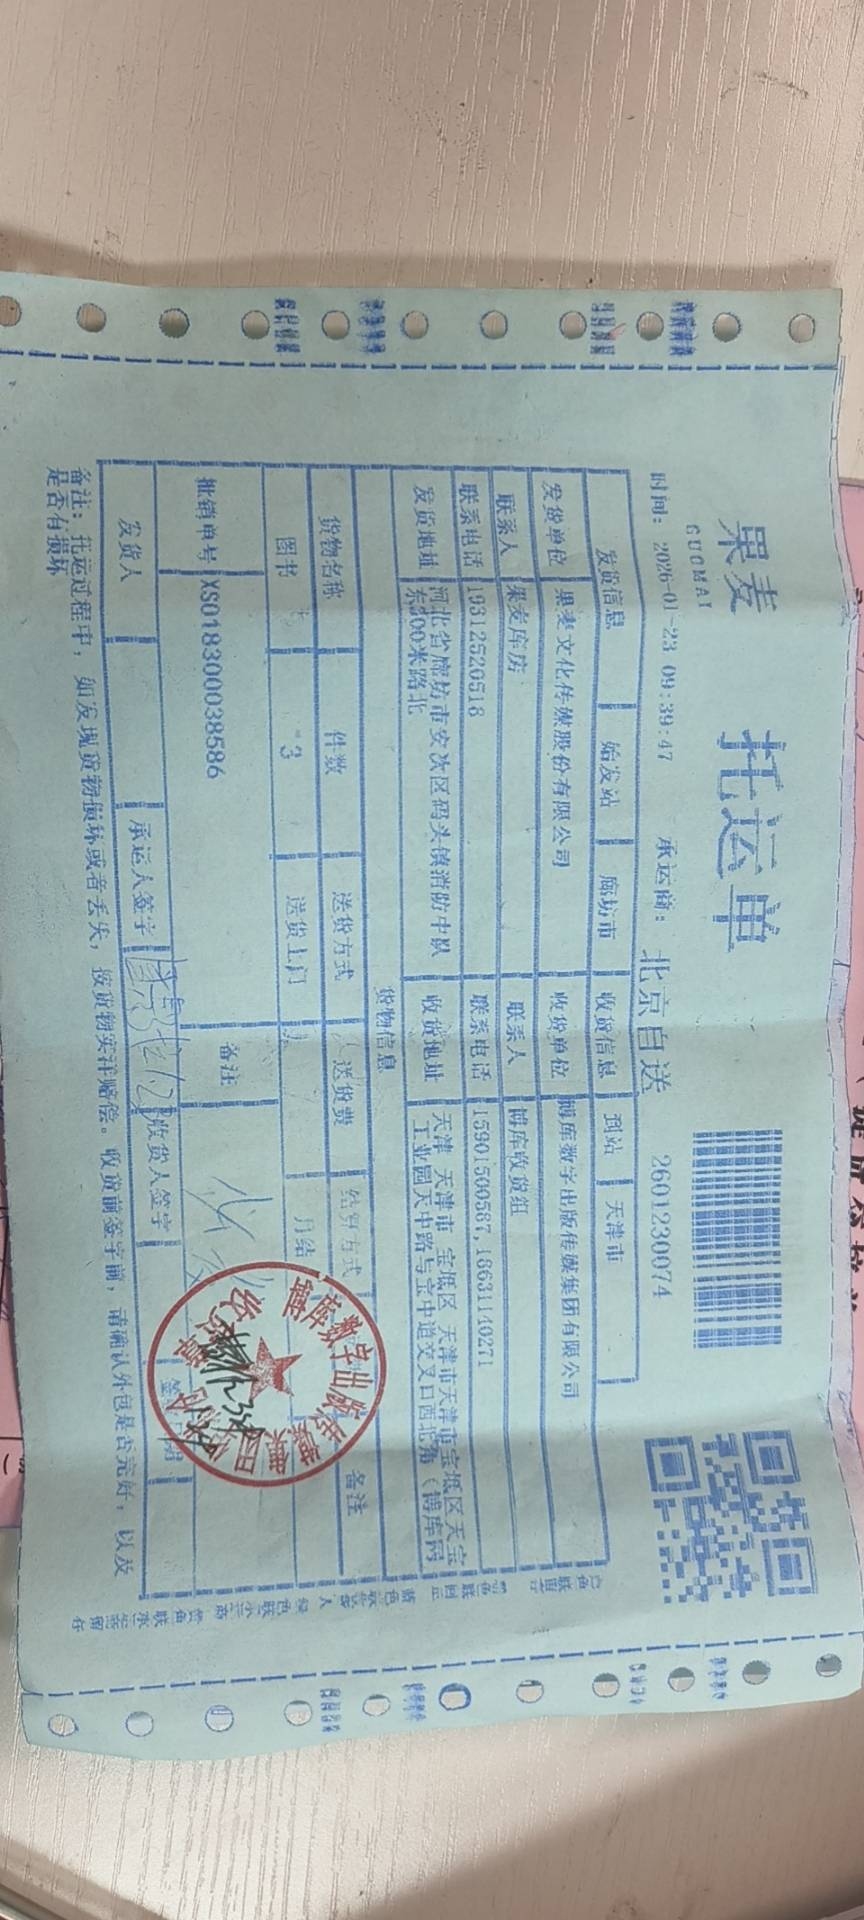 果麦
GUOMAI
托运单
时间： 2026-01-23 09:39:47 承运商： 北京自送 2601230074
发货信息 始发站 廊坊市 收货信息 到站 天津市
发货单位 果麦文化传媒股份有限公司 收货单位 博库数字出版传媒集团有限公司
联系人 果麦库房 联系人 博库收货组
联系电话 19312520518 联系电话 15901500587,18631140271
发货地址 河北省廊坊市安次区码头镇消防中队 收货地址 天津 天津市 宝坻区 天津市天津市宝坻区天宝
东300米路北 工业园天中路与宝中道交叉口西北角（博库网
货物信息
货物名称 件数 送货方式 送货费 结算方式 备注
图书 3 送货上门 月结
批销单号 XS018300038586 备注
发货人 承运人签字 收货人签字
备注：托运过程中，如发现货物损坏或者丢失，按货物实洋赔偿。收货前签字前，请确认外包是否完好，以及
是否有损坏